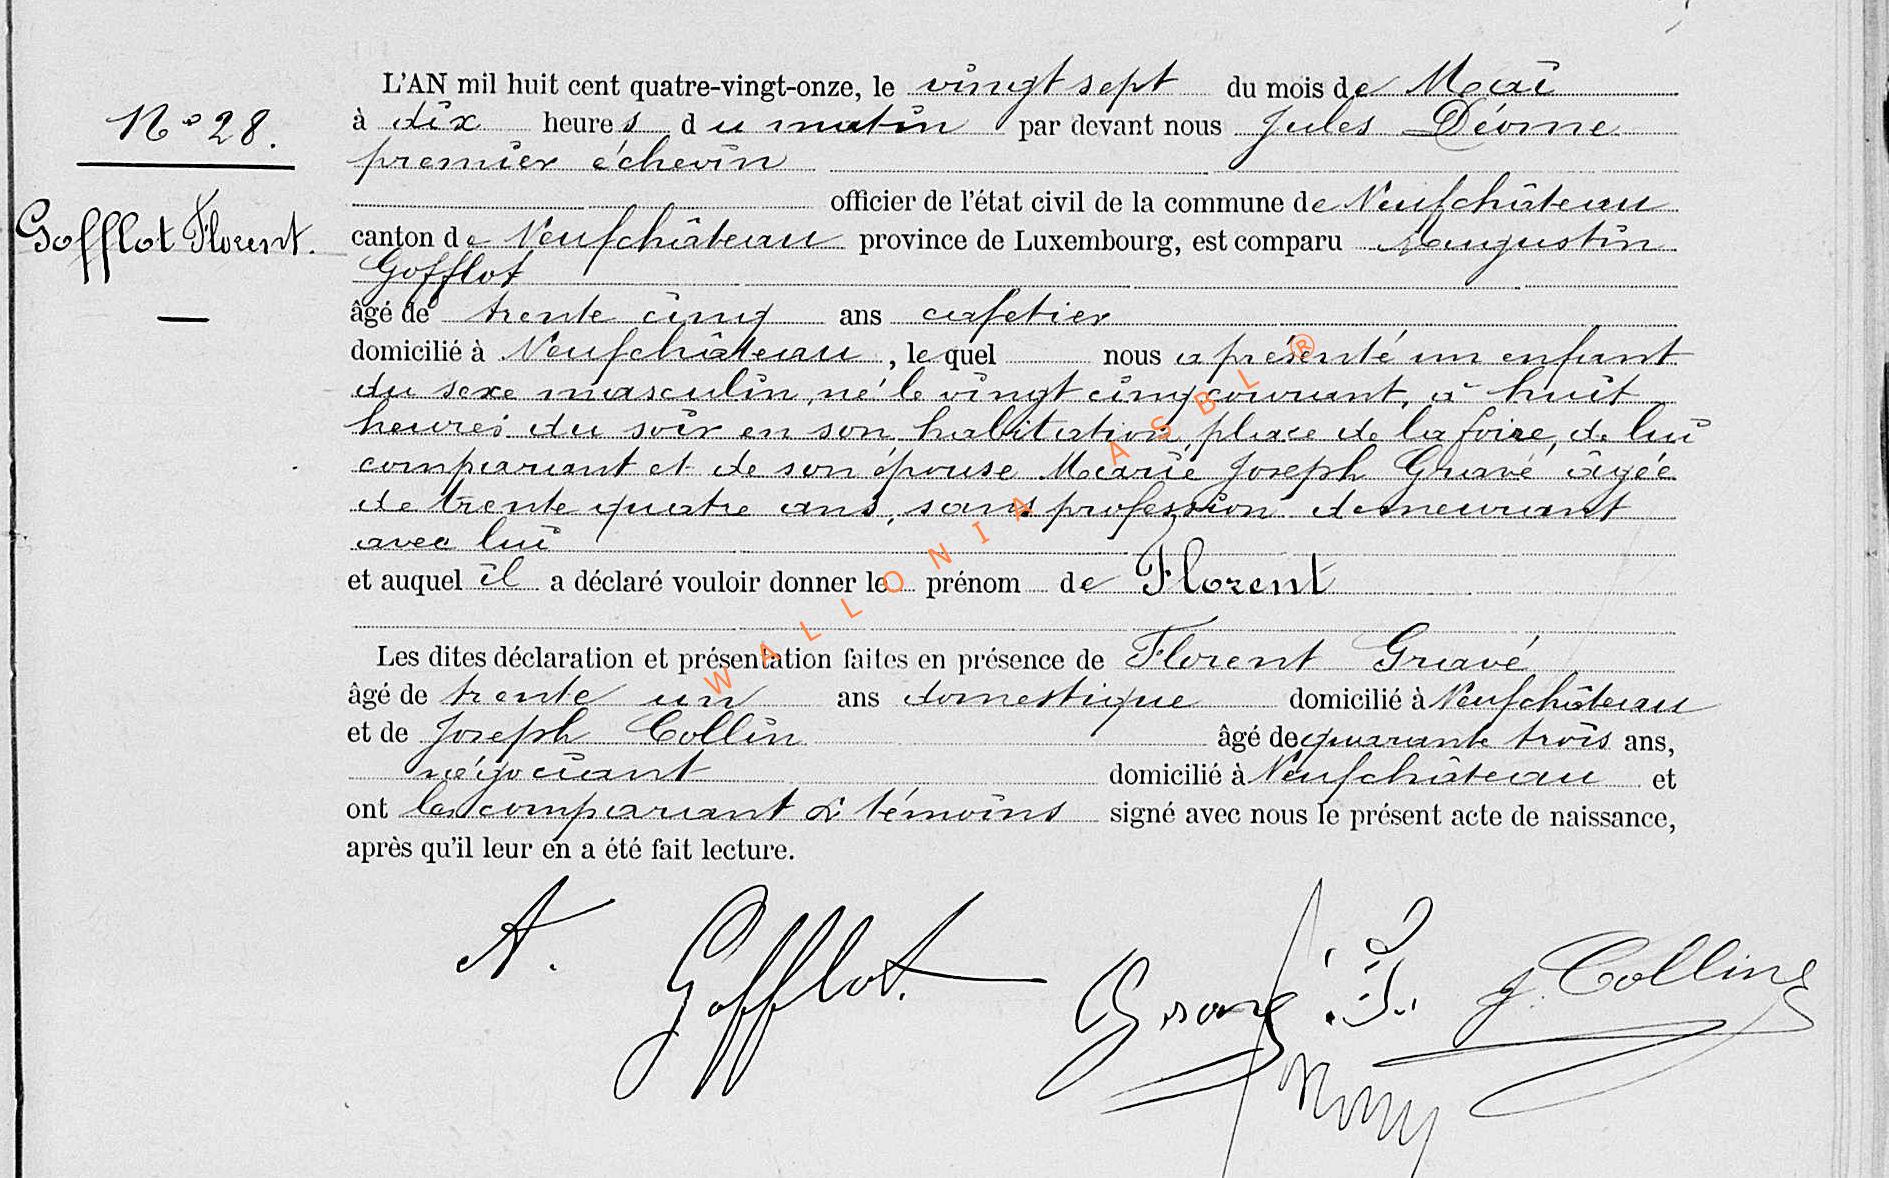 N° 28.
Gofflot Florent.
L'AN mil huit cent quatre-vingt-onze, le vingt sept du mois de Mai
à dix heures du matin par devant nous Jules Déome
premier échevin
officier de l'état civil de la commune de Neufchâteau
canton de Neufchâteau province de Luxembourg, est comparu Augustin
Gofflot
âgé de trente cinq ans cafetier
domicilié à Neufchâteau, lequel nous a présenté un enfant
du sexe masculin, né le vingt cinq courant, à huit
heures du soir en son habitation, place de la foire, de lui
comparant et de son épouse Marie Joseph Gravé âgée
de trente quatre ans, sans profession demeurant
avec lui
et auquel il a déclaré vouloir donner le prénom de Florent
Les dites déclaration et présentation faites en présence de Florent Gravé
âgé de trente un ans domestique domicilié à Neufchâteau
et de Joseph Collin âgé de quarante trois ans,
négociant domicilié à Neufchâteau et
ont les comparant & témoins signé avec nous le présent acte de naissance,
après qu'il leur en a été fait lecture.
A. Gofflot. Gravé F. J. Collin
WALLONIA ASBL ®